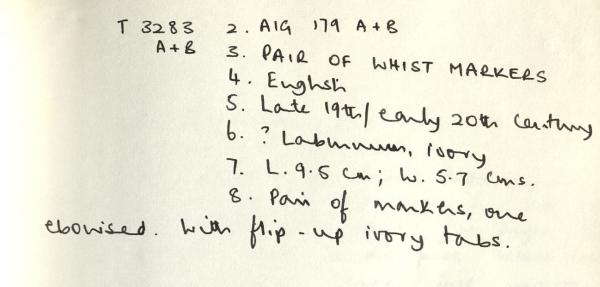 T 3283 2. AIG 179 A+B
A+B 3. PAIR OF WHIST MARKERS
4. English
5. Late 19th/early 20th Century
6. ? Laburnum, ivory
7. L. 9.5 cm; W. 5.7 cms.
8. Pair of markers, one
ebonised. With flip-up ivory tabs.